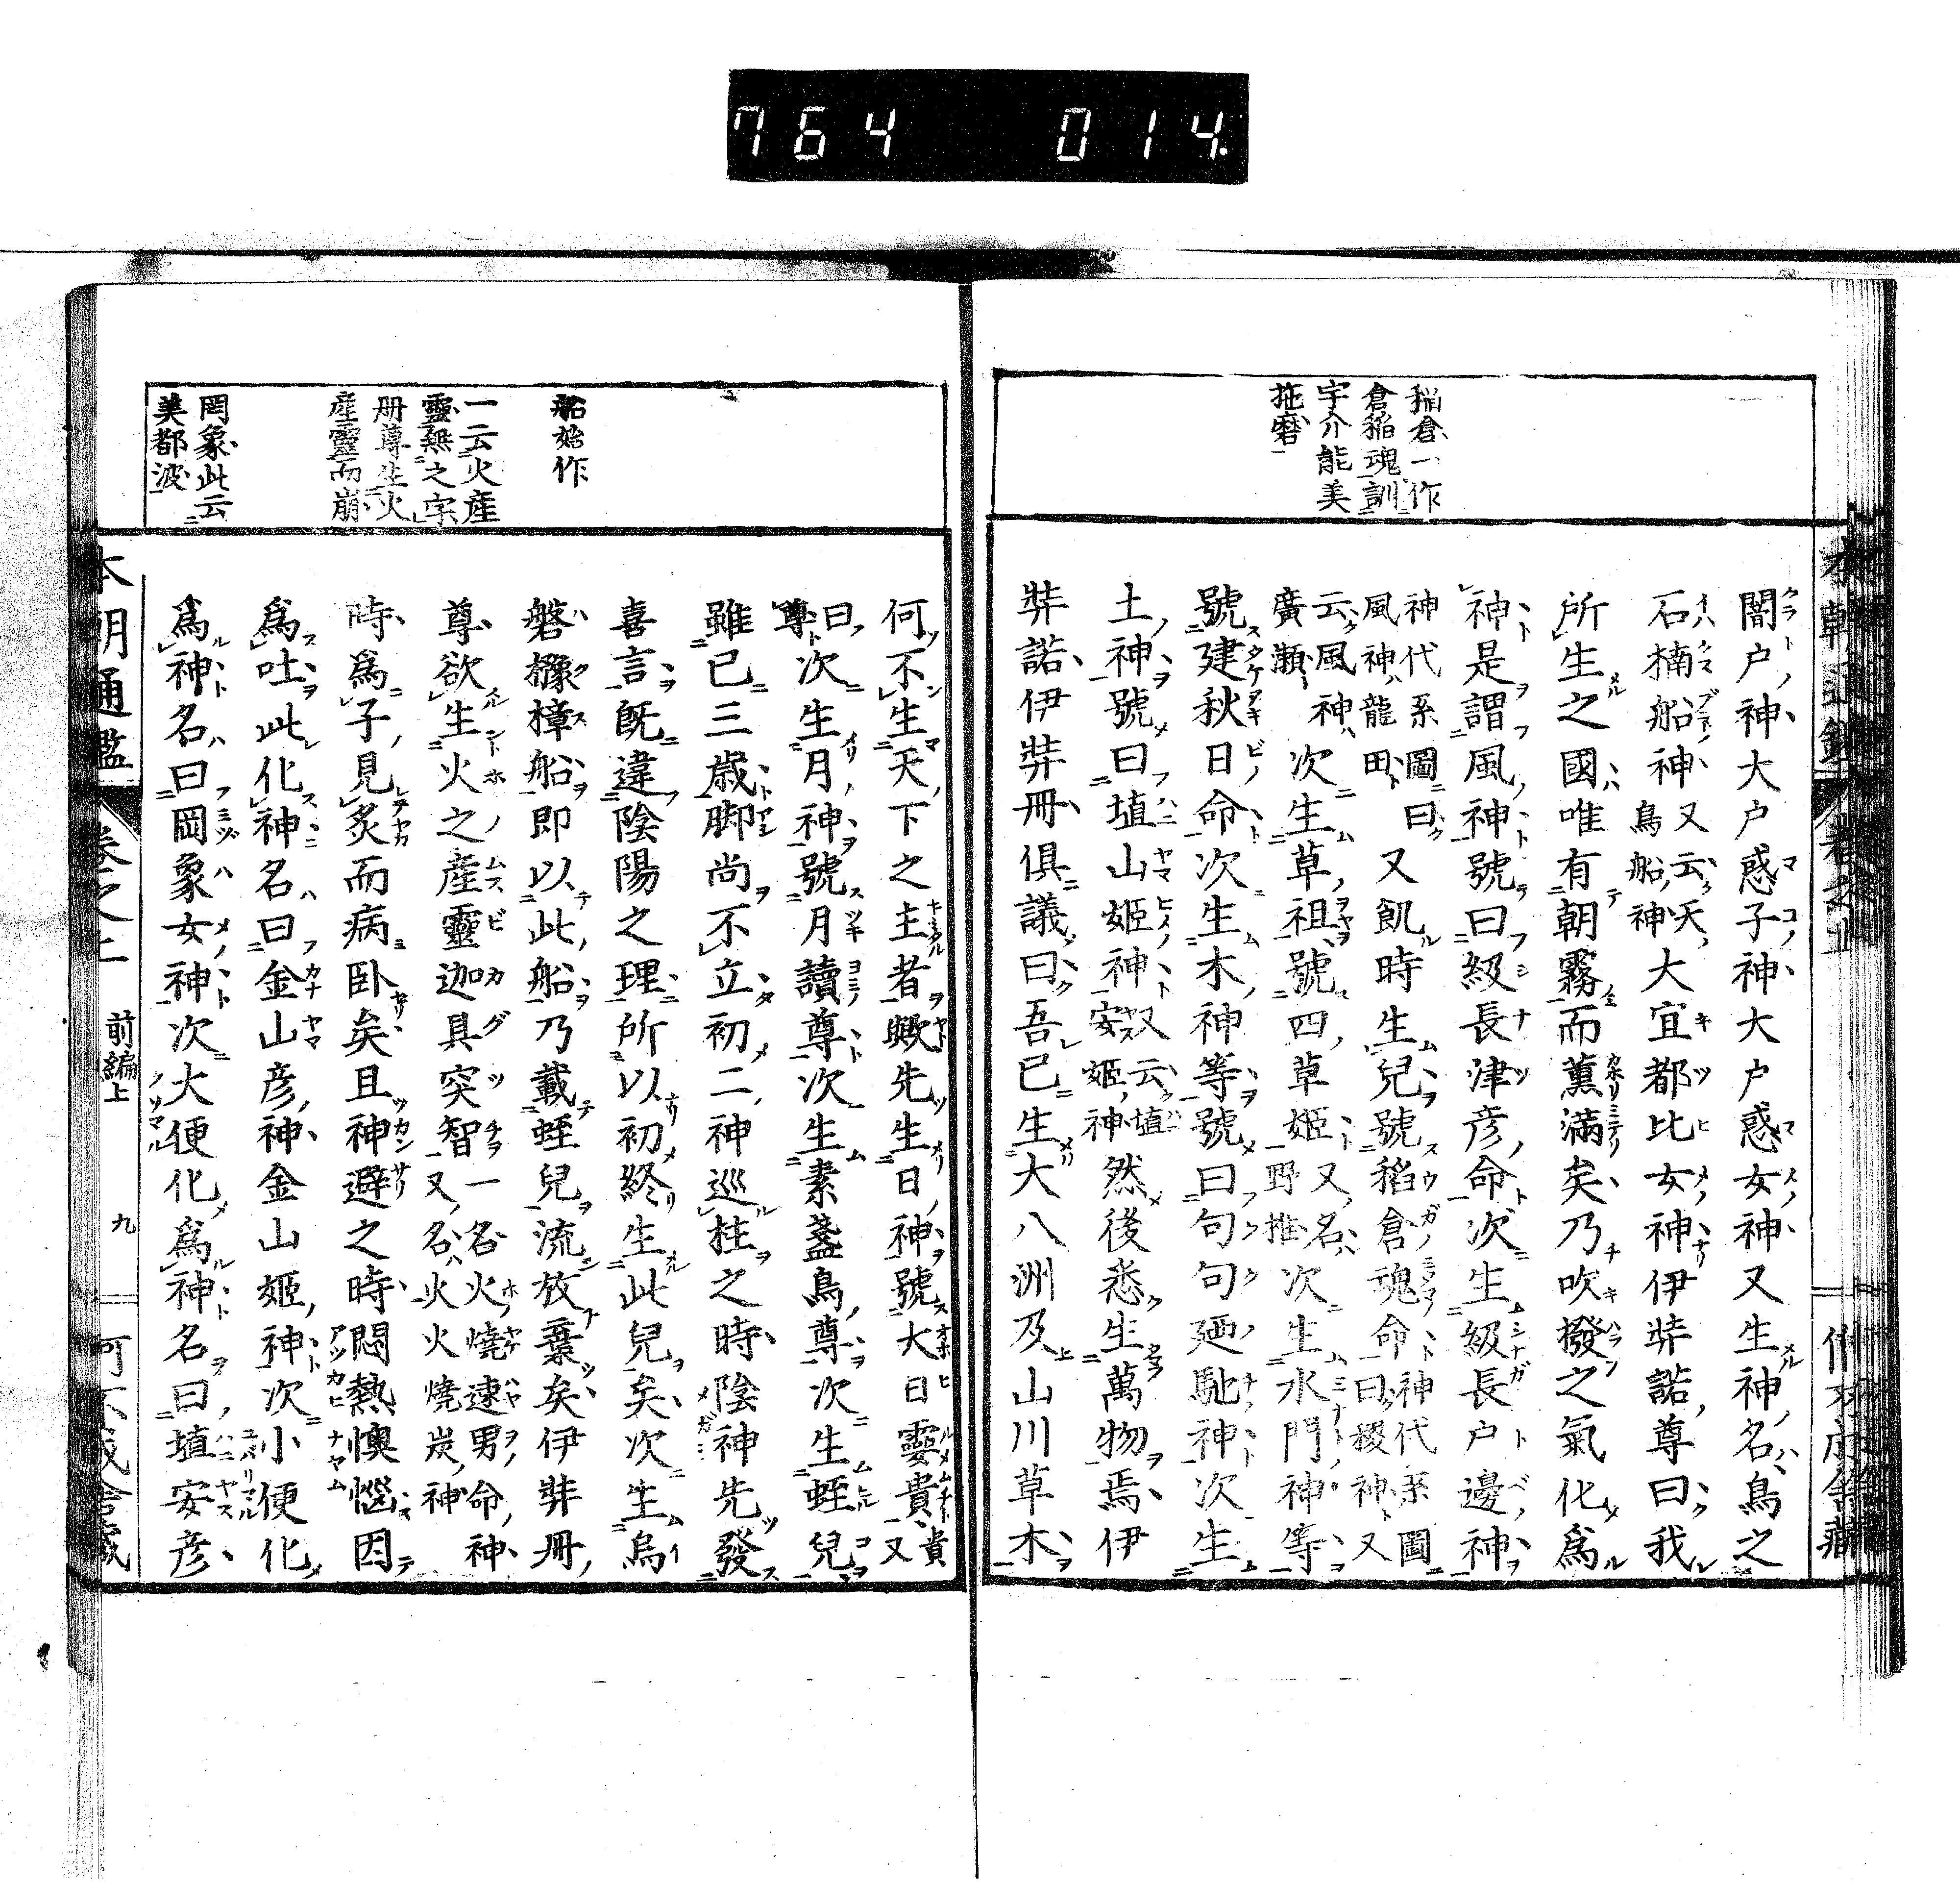 764 014
稲倉一作
倉稲魂訓
宇介能美
拖磨
闇户神大户惑子神大户惑女神又生神名鳥之
石楠船神又云天鳥船神大宜都比女神伊弉諾尊曰我
所生之國唯有朝霧而薫滿矣乃吹撥之氣化爲
神是謂風神號曰級長津彦命次生級長户邊神
神代系圖曰風神龍田又飢時生兒號稻倉魂命神代系圖曰稷神又
云風神廣瀬次生草祖號四草姬又名野推次生水門神等
號建秋日命次生木神等號曰句句廼馳神次生
土神號曰埴山姬神又云埴安姬神然後悉生萬物焉伊
弉諾伊弉冊俱議曰吾已生大八洲及山川草木
船始作
一云火産
靈無之字
册尊生火
産靈而崩
罔象此云
美都波
何不生天下之主者歟先生日神號大日靈貴貴又
曰尊次生月神號月讀尊次生素盞鳥尊次生蛭兒
雖已三歳脚尚不立初二神巡柱之時陰神先發
喜言既違陰陽之理所以初終生此兒矣次生鳥
磐櫲樟船即以此船乃載蛭兒流放棄矣伊弉冊
尊欲生火之産靈迦具突智一名火燒速男命神又名火火燒炭神
時爲子見炙而病卧矣且神避之時悶熱懊惱因
爲吐此化神名曰金山彦神金山姬神次小便化
爲神名曰罔象女神次大便化爲神名曰埴安彦
本朝通鑑 卷之上 前編上 九